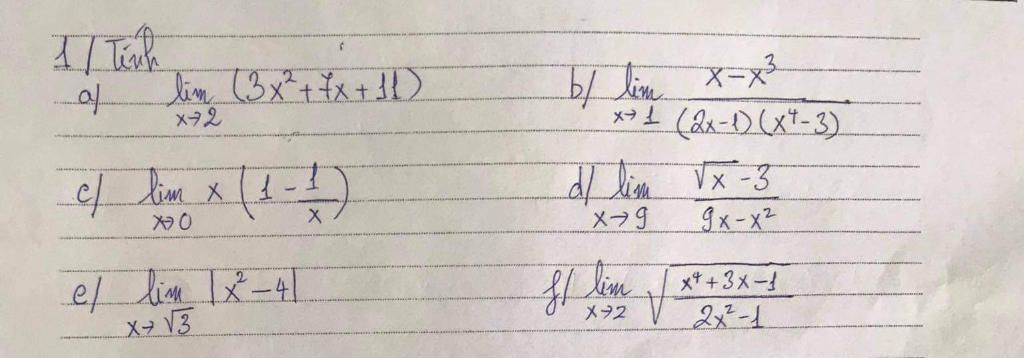 1/ Tính
a) lim x→2 (3x²+7x+11)
b/ lim x→1 (x-x³)/((2x-1)(x⁴-3))
c/ lim x→0 x(1-1/x)
d/ lim x→9 (√x-3)/(9x-x²)
e/ lim x→√3 |x²-4|
f/ lim x→2 √((x⁴+3x-1)/(2x²-1))